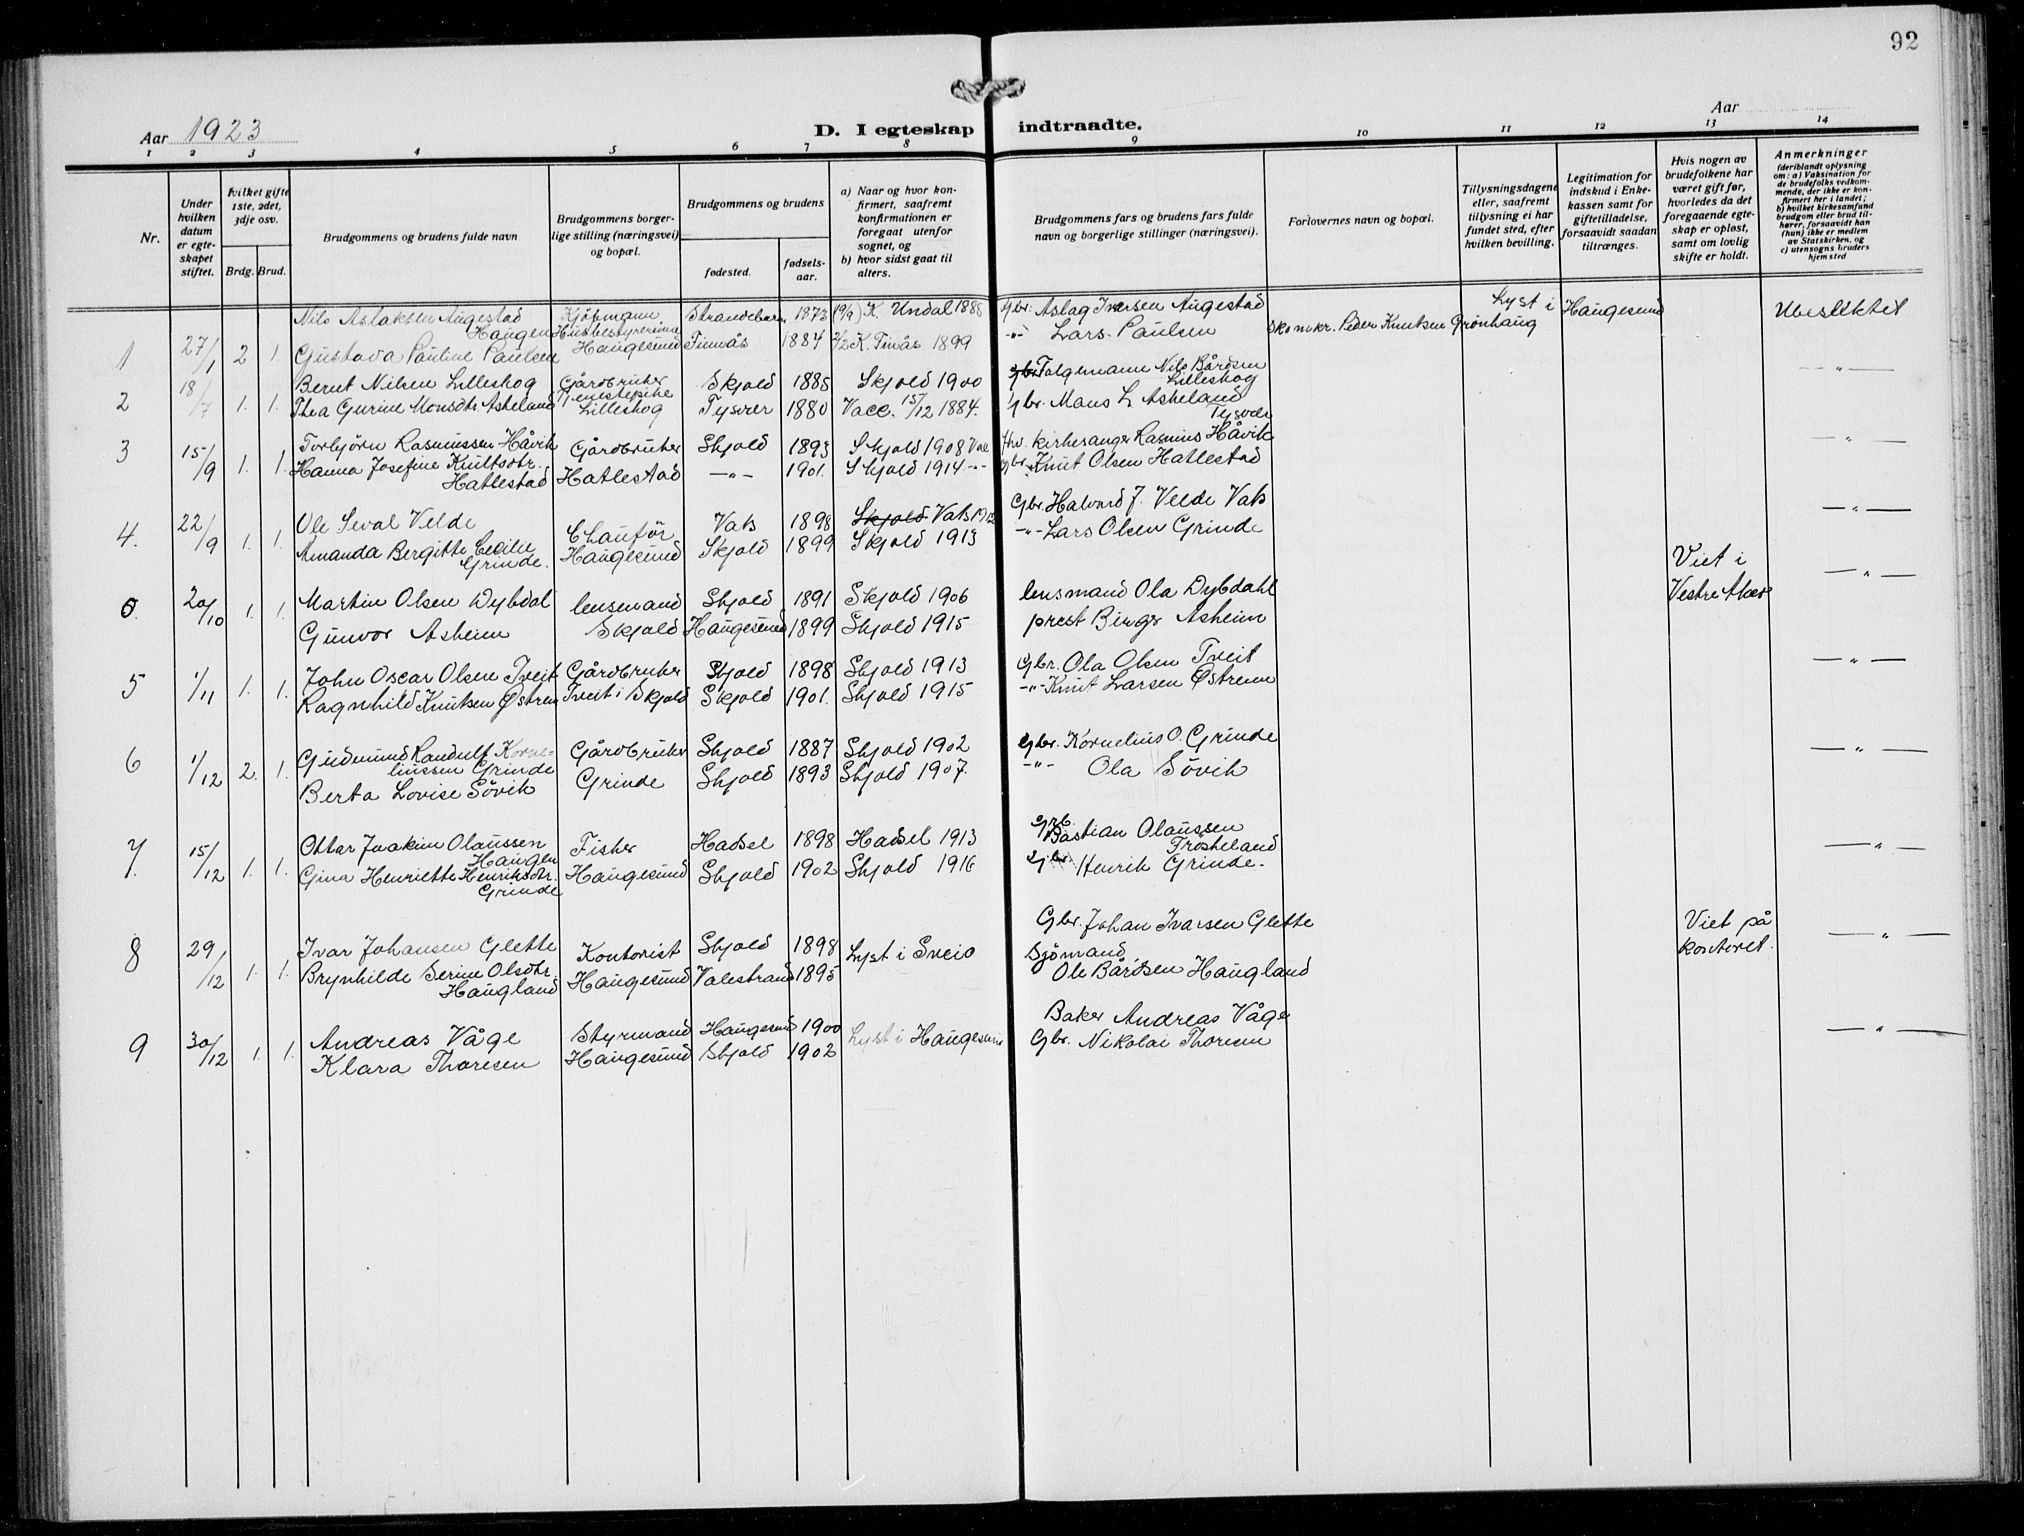 92
Aar 1923
D. I egteskap indtraadte.
Aar
1 2 3 4 5 6 7 8 9 10 11 12 13 14
Nr.
Under hvilken datum er egteskapet stiftet.
hvilket gifte 1ste, 2det, 3dje osv.
Brdg. Brud.
Brudgommens og brudens fulde navn
Brudgommens borgerlige stilling (næringsvei) og bopæl.
Brudgommens og brudens
fødested.
fødselsaar.
a) Naar og hvor konfirmert, saafremt konfirmationen er foregaat utenfor sognet, og
b) hvor sidst gaat til alters.
Brudgommens fars og brudens fars fulde navn og borgerlige stillinger (næringsvei).
Forlovernes navn og bopæl.
Tillysningsdagene eller, saafremt tillysning ei har fundet sted, efter hvilken bevilling.
Legitimation for indskud i Enkekassen samt for giftetilladelse, forsaavidt saadan tiltrænges.
Hvis nogen av brudefolkene har været gift før, hvorledes da det foregaaende egteskap er opløst, samt om lovlig skifte er holdt.
Anmerkninger (deriblandt oplysning om: a) Vaksination for de brudefolks vedkommende, der ikke er konfirmert her i landet; b) hvilket kirkesamfund brudgom eller brud tilhører, forsaavidt han (hun) ikke er medlem av Statskirken, og c) utensogns bruders hjemsted
Nils Aslaksen Augestad Kjøbmann Strandebarm 1873 K. Undal 1888 Gbr. Aslag Iversen Augestad Lyst i Haugesund Ubeslektet
Haugen Husbestyrerinne
1 27/1 2. 1. Gustava Pauline Paulsen Haugesund Finnås 1884 K. Finås 1899 -"- Lars Paulsen Skomkr. Peder Knutsen Grønhaug
2 18/7 1. 1. Bernt Nilsen Lilleskog Gårdbruker Skjold 1885 Skjold 1900 Følgemann Nils Bårdsen Lilleskog -"-
Thea Gurine Monsdtr. Askeland Tjenestepike Lilleskog Tysvær 1880 Vacc. 15/12 1884. Gbr. Mons L. Askeland Tysvær
3 15/9 1. 1. Torbjørn Rasmussen Håvik Gårdbruker Skjold 1893 Skjold 1908 Vacc kirkesanger Rasmus Håvik -"-
Hanna Josefine Knutsdtr. Hatlestad Hatlestad -"- 1901. Skjold 1914 -"- gbr. Knut Olsen Hatlestad
4. 22/9 1. 1. Ole Seval Velde Chauför Vats 1898 Skjold Vats 1912 Gbr. Halvard J. Velde Vats -"-
Amanda Bergitte Cecilie Grinde. Haugesund Skjold 1899 Skjold 1913 -"- Lars Olsen Grinde
0. 20/10 1. 1. Martin Olsen Dybdal lensmand Skjold 1891 Skjold 1906 lensmand Ola Dybdahl Viet i Vestre Aker -"-
Gunvor Asheim Skjold Haugesund 1899 Skjold 1915 prest Birger Asheim
5 1/11 1. 1. John Oscar Olsen Tveit Gårdbruker Skjold 1898 Skjold 1913 Gbr. Ola Olsen Tveit -"-
Ragnhild Knutsen Østrem Tveit i Skjold Skjold 1901. Skjold 1915 -"- Knut Larsen Østrem
6 1/12 2. 1. Gudmund Randulf Kornelinssen Grinde Gårdbruker Skjold 1887 Skjold 1902 Gbr. Kornelius O. Grinde -"-
Berta Lovise Søvik Grinde Skjold 1893 Skjold 1907. -"- Ola Søvik
7. 15/12 1. 1. Ottar Joakim Olaussen Haugen Fisker Hadsel 1898 Hadsel 1913 Bastian Olaussen Frøskeland -"-
Gina Henriette Henriksdtr. Grinde Haugesund Skjold 1902 Skjold 1916 Gbr. Henrik Grinde.
8 29/12 1. 1. Ivar Johansen Glette Kontorist Skjold 1898 Lyst i Sveio Gbr. Johan Ivarsen Glette Viet på kontoret. -"-
Brynhilde Serine Olsdtr. Haugland Haugesund Valestrand 1895 Sjømand Ole Bårdsen Haugland
9 30/12 1. 1. Andreas Våge Styrmand Haugesund 1900 Lyst i Haugesund Baker Andreas Våge -"-
Klara Thoresen Haugesund Skjold 1902 Gbr. Nikolai Thoresen